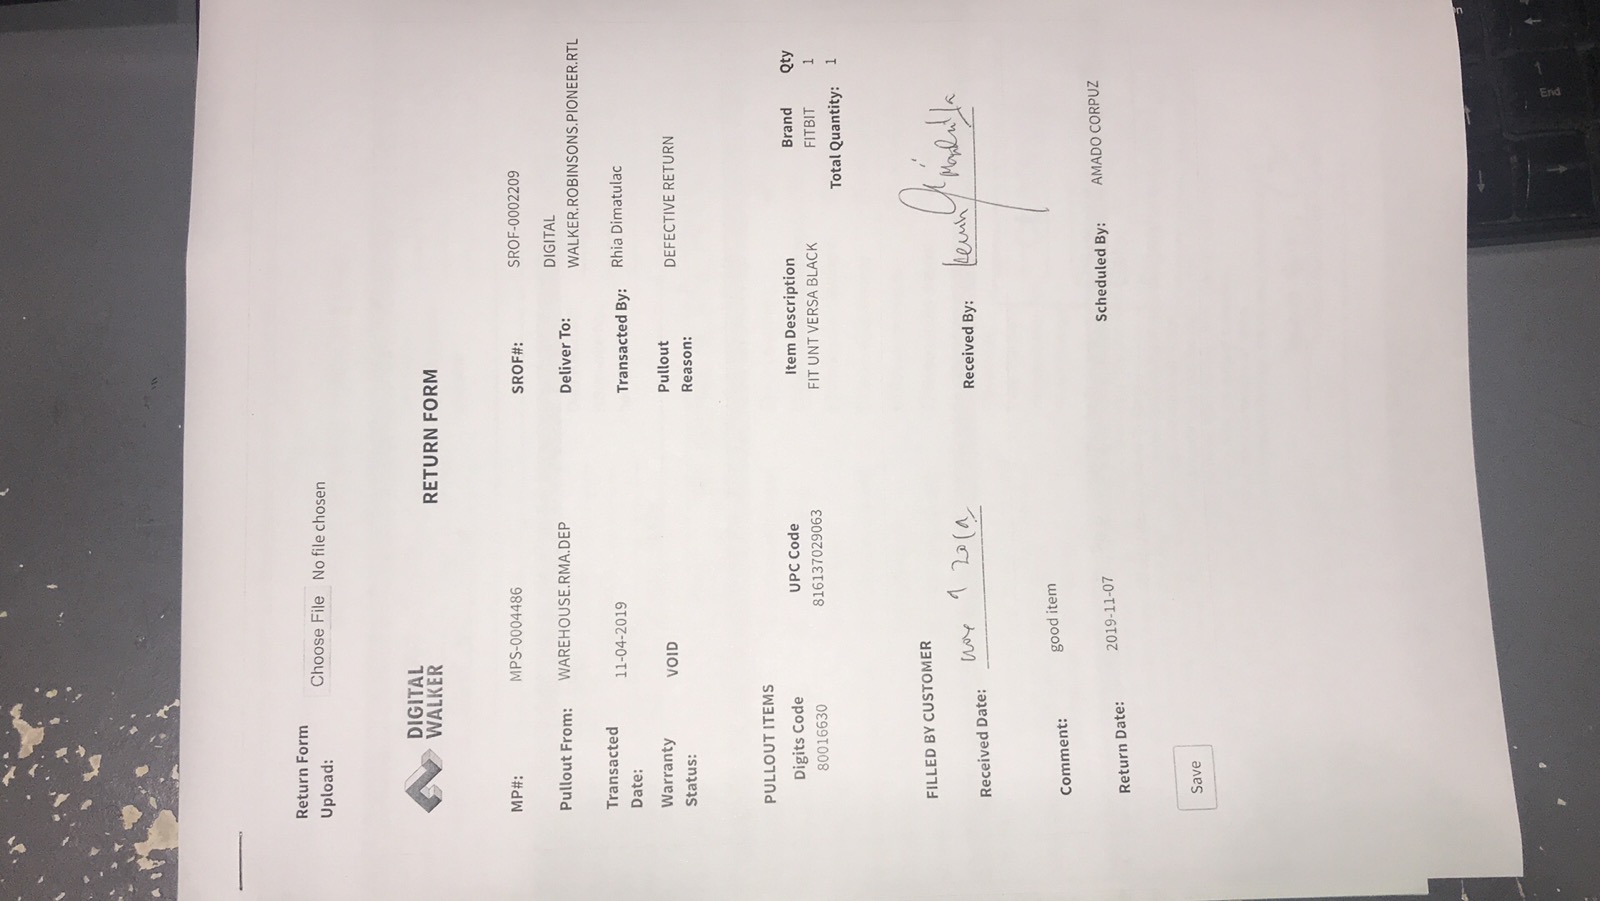 Return Form Upload: Choose File No file chosen
DIGITAL WALKER
RETURN FORM
MP#: MPS-0004486 SROF#: SROF-0002209
Pullout From: WAREHOUSE.RMA.DEP Deliver To: DIGITAL WALKER.ROBINSONS.PIONEER.RTL
Transacted Date: 11-04-2019 Transacted By: Rhia Dimatulac
Warranty Status: VOID Pullout Reason: DEFECTIVE RETURN
PULLOUT ITEMS
Digits Code UPC Code Item Description Brand Qty
80016630 816137029063 FIT UNT VERSA BLACK FITBIT 1
Total Quantity: 1
FILLED BY CUSTOMER
Received Date: Nov 9 2019 Received By:
Comment: good item
Return Date: 2019-11-07 Scheduled By: AMADO CORPUZ
Save
End